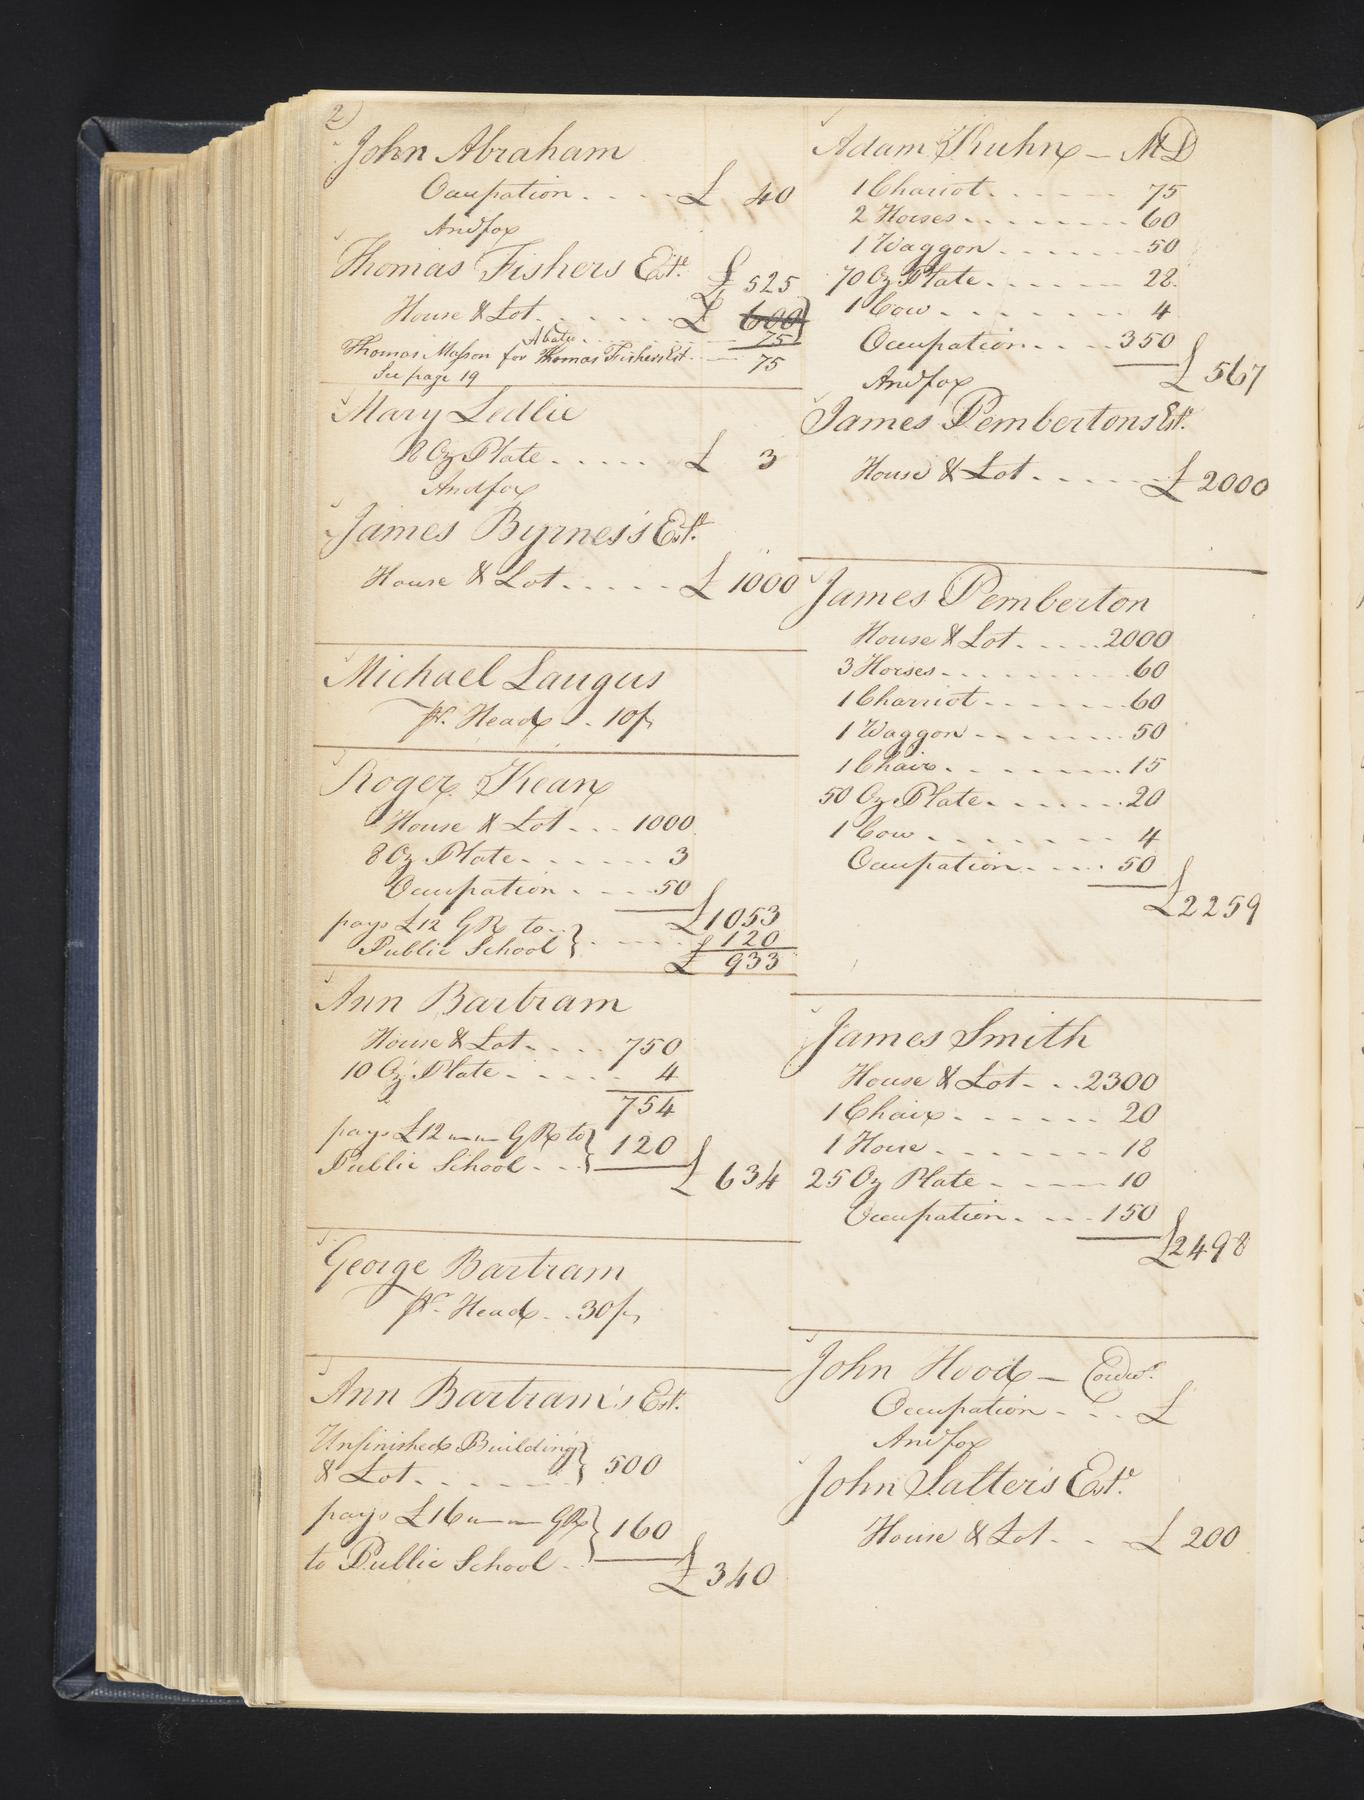 2)
John Abraham
Occupation . . . . £ 40
And for
Thomas Fishers Est.
£ 525
House & Lot . . . . . . £ 600
Abate . . . 75
Thomas Mason for Thomas Fishers Est. 75
See page 19
Mary Ledlie
8 Oz Plate . . . . . £ 3
And for
James Byrnes's Est.
House & Lot . . . . . £ 1000
Michael Laugus
Pr. Head . . 10/
Roger Kean
House & Lot . . . 1000
8 Oz Plate . . . . . . 3
Occupation . . . . 50
£ 1053
pays £12 G R to
Public School } . . . . £ 120
£ 933
Ann Bartram
House & Lot . . . . 750
10 Oz. Plate . . . . . 4
754
pays £12 G R to } 120
Public School . . .
£ 634
George Bartram
Pr. Head . . 30/
Ann Bartram's Est.
Unfinished Building
& Lot . . . . . . } 500
pays £16 G R } 160
to Public School . .
£ 340
Adam Kuhn — MD
1 Chariot . . . . . . 75
2 Horses . . . . . . . 60
1 Waggon . . . . . . 50
70 Oz Plate . . . . . . 28
1 Cow . . . . . . . 4
Occupation . . . . 350
£ 567
And for
James Pembertons Est.
House & Lot . . . . . £ 2000
James Pemberton
House & Lot . . . . . 2000
3 Horses . . . . . . . . 60
1 Charriot . . . . . . 60
1 Waggon . . . . . . . 50
1 Chair . . . . . . . . 15
50 Oz Plate . . . . . . 20
1 Cow . . . . . . . 4
Occupation . . . . . 50
£ 2259
James Smith
House & Lot . . . 2300
1 Chair . . . . . . 20
1 Horse . . . . . . . 18
25 Oz Plate . . . . 10
Occupation . . . . 150
£ 2498
John Hood —
Occupation . . . . £
And for
John Salter's Est.
House & Lot . . . £ 200